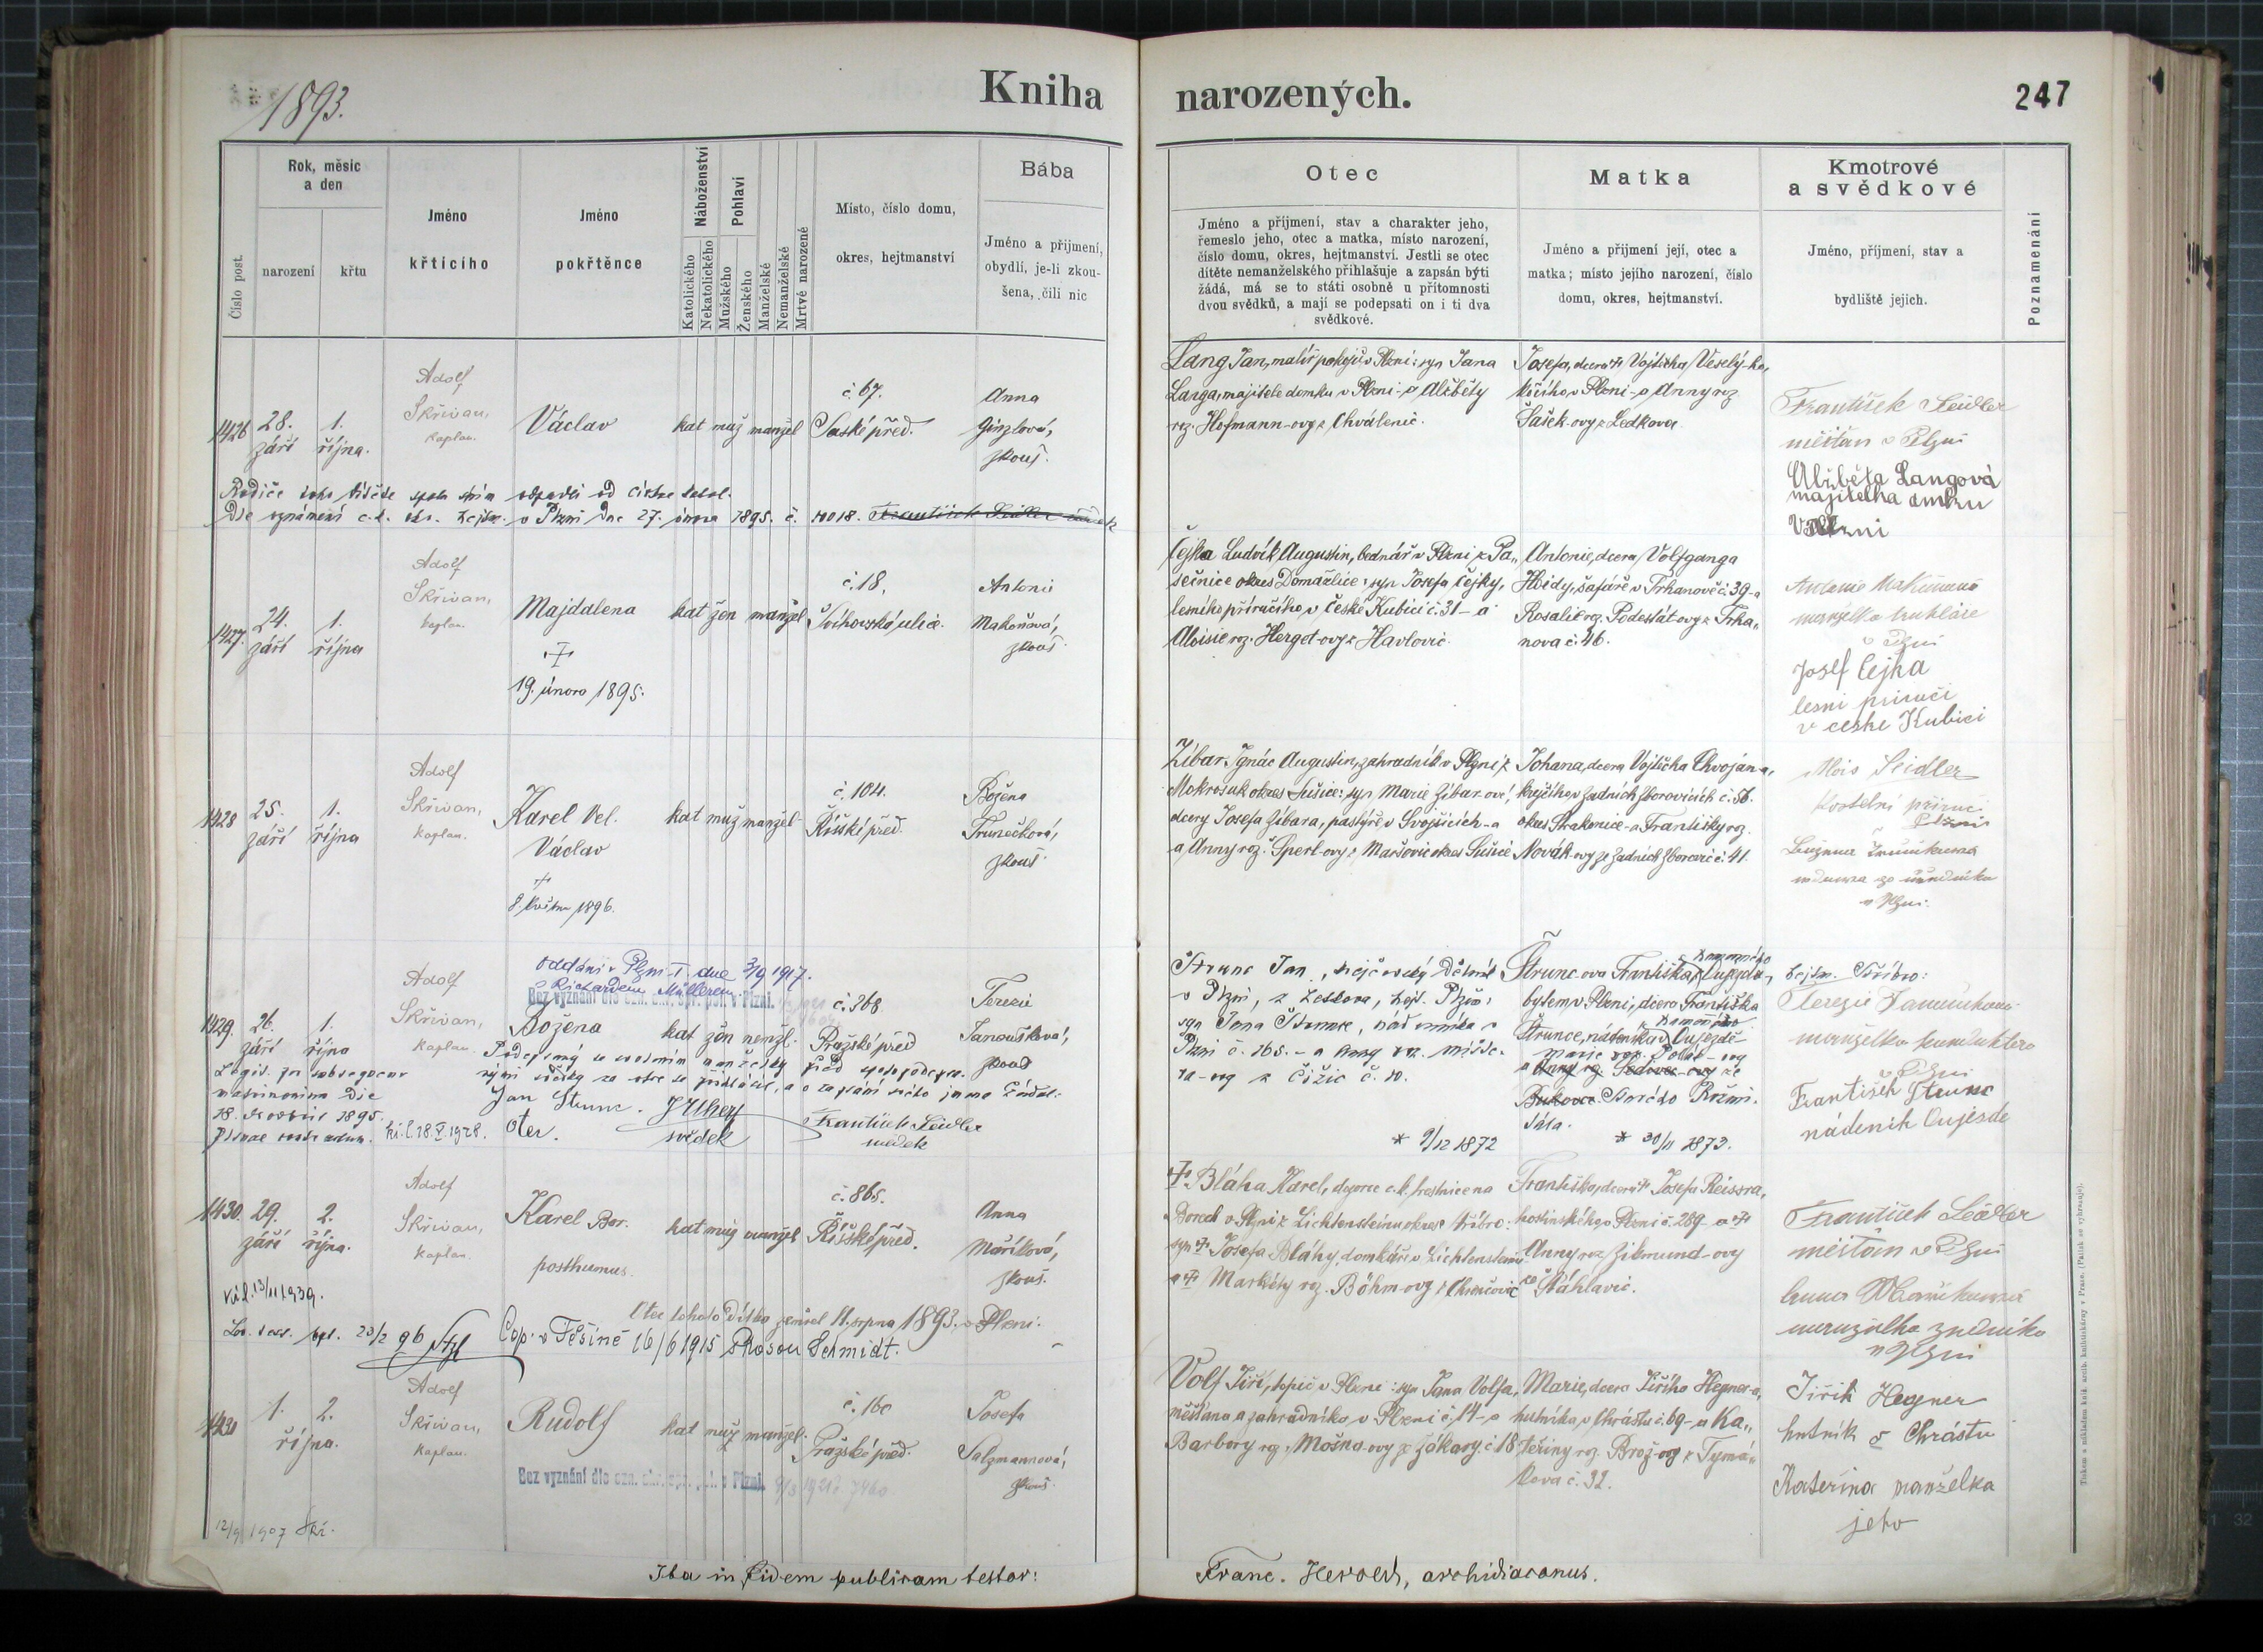 1893.
Kniha narozených.
247
Číslo post.
Rok, měsíc
a den
narození
křtu
Jméno
křtícího
Jméno
pokřtěnce
Náboženství
Katolického
Nekatolického
Pohlaví
Mužského
Ženského
Manželské
Nemanželské
Mrtvě narozené
Místo, číslo domu,
okres, hejtmanství
Bába
Jméno a příjmení,
obydlí, je-li zkou-
šena, čili nic
Otec
Jméno a příjmení, stav a charakter jeho,
řemeslo jeho, otec a matka, místo narození,
číslo domu, okres, hejtmanství. Jestli se otec
dítěte nemanželského přihlašuje a zapsán býti
žádá, má se to státi osobně u přítomnosti
dvou svědků, a mají se podepsati on i ti dva
svědkové.
Matka
Jméno a příjmení její, otec a
matka; místo jejího narození, číslo
domu, okres, hejtmanství.
Kmotrové
a svědkové
Jméno, příjmení, stav a
bydliště jejich.
Poznamenání
1426
28.
září
1.
října.
Adolf
Skřivan,
kaplan.
Václav
kat muž manžel
č. 67.
Saské před.
Anna
Ginzlová,
zkouš.
Lang Jan, malíř pokojů v Plzni: syn Jana
Langa, majitele domku v Plzni - a Alžběty
roz. Hofmann-ovy z Chválenic.
Josefa, dcera † Vojtěcha Veselý-ho,
kočího v Plzni - a Anny roz.
Šašek-ovy z Ledkova.
František Seidler
měšťan v Plzni
Alžběta Langová
majitelka domku
v Plzni
Rodiče toho dítěte spolu s ním odpadli od církve katol.
Dle oznámení c.k. okr. hejtm. v Plzni dne 27. února 1895. č. 10018.
1427.
24.
září
1.
října
Adolf
Skřivan,
kaplan.
Majdalena
†
19. února 1895.
kat žen manžel
č. 18,
ulice.
Antonie
Makoňová,
zkouš.
Čejka Ludvík Augustin, bednář v Plzni z Pa„
sečnice okres Domažlice: syn Josefa Čejky,
lesního příručího v České Kubici č. 31 - a
Aloisie roz. Herget-ovy z Havlovic.
Antonie, dcera Volfganga
Heidy, šafáře v Trhanově č. 39 - a
Rosalie roz. Podestát-ovy z Trha„
nova č. 46.
Antonie
manželka truhláře
v Plzni
Josef Čejka
lesni přiruči
v česke Kubici
1428
25.
září
1.
října
Adolf
Skřivan,
kaplan.
Karel Vel.
Václav
†
8. května 1896.
kat muž manžel
č. 104.
Říšské před.
Božena
Trunečková,
zkouš.
Zíbar Ignác Augustin, zahradník v Plzni z
Mokrosuk okres Sušice: syn Marie Zíbar-ové,
dcery Josefa Zíbara, pastýře v Svojšicích - a
a Anny roz. Šperl-ovy z Maršovic okres Sušice
Johana, dcera Vojtěcha Chvojána,
krejčího v Zadních Zborovicích č. 56.
okres Strakonice - a Františky roz.
Novák-ovy ze Zadních Zborovic č. 41.
Alois Seidler
kostelní příruč.
Plzni
Božena Trunečková
vdova po úředníku
v Plzni.
1429.
26.
září
1.
října
Adolf
Skřivan,
kaplan.
oddáni v Plzni I. dne 3/9 1917.
s Richardem Müllerem
Bez vyznání dle ozn. okr. spr. pol. v Plzni.
Božena
kat žen nemžl.
č. 268
Pražské před
Terezie
Janoušková,
zkouš
Legit. per subsequens
matrimonium die
18. 1895.
18.V.1928.
Jan Strunc.
otec.
svědek
František Seidler
svědek
Strunc Jan,
v Plzni, z Letkova, hejt. Plzeň:
syn Jana Strunce, nádenníka v
Plzni č. 268. - a Anny roz.
-ovy z Čižic č. 10.
* 9/12 1872
Štrunc-ova Františka, z Kamenného Oujezda, hejtm. Stříbro:
bytem v Plzni, dcera Františka
Štrunce, nádeníka v Kamenném Oujezdě
* 30/11 1873.
Terezie
manželka konduktera
v Plzni
František Strunc
nádeník Oujezde
1430.
29.
září
2.
října.
Adolf
Skřivan,
kaplan.
Karel Bor.
posthumus.
kat muž manžel
č. 865.
Říšské před.
Anna
Maříková,
zkouš.
† Bláha Karel, dozorce c.k. trestnice na
Borech v Plzni z Lichtensteinu okres Stříbro:
syn † Josefa Bláhy, domkáře v Lichtensteinu
a † Markéty roz. Böhm-ovy z
Františka, dcera † Josefa Reissra,
hostinského v Plzni č. 289 - a †
Anny roz. Zikmund-ovy
ze Šťáhlavic.
František Seidler
měšťan v Plzni
Anna Maříková
manželka zedníka
v Plzni
Otec tohoto dítka zemřel 11. srpna 1893. v Plzni.
Cop. v Těšíně 16/6 1915 s Rosou Schmidt.
1431
1.
2.
října.
Adolf
Skřivan,
kaplan.
Rudolf
kat muž manžel.
č. 160
Pražské před.
Josefa
Salzmannová,
zkouš.
Bez vyznání dle ozn. okr. spr. pol. v Plzni.
Volf Jiří, topič v Plzni: syn Jana Volfa,
měšťana a zahradníka v Plzni č. 14 - a
Barbory roz. Mošna-ovy ze Zákavy č. 18
Marie, dcera Jiřího Hegner-a,
hutníka v Chrástu č. 69 - a Ka„
teřiny roz. Brož-ovy z Tymá„
kova č. 32.
Jiřík Hegner
hutník v Chrástu
Kateřina manželka
jeho
12/9 1907
Ita in fidem publicam testor:
Franc. Herold, archidiaconus.